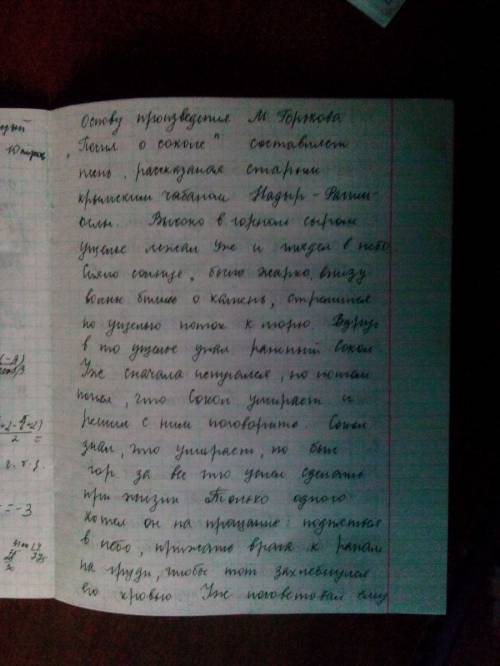 Основу произведения М. Горькова
"Песня о соколе" составляет
песнь, рассказаная старым
крымским чабаном Надыр-Рагим-
оглы. Высоко в горном сыром
ущелье лежал Уж и глядел в небо.
Сияло солнце, было жарко, внизу
волны бились о камень, стремился
по ущелью поток к морю. Вдруг
в то ущелье упал раненный Сокол.
Уж сначала испугался, но потом
понял, что Сокол умирает и
решил с ним поговорить. Сокол
знал, что умирает, но был
горд за все что успел сделать
при жизни Только одного
хотел он на прощание: подняться
в небо, прижать врага к ранам
на груди, чтобы тот захлебнулся
его кровью Уж посоветовал ему
(-4)
2
= -3